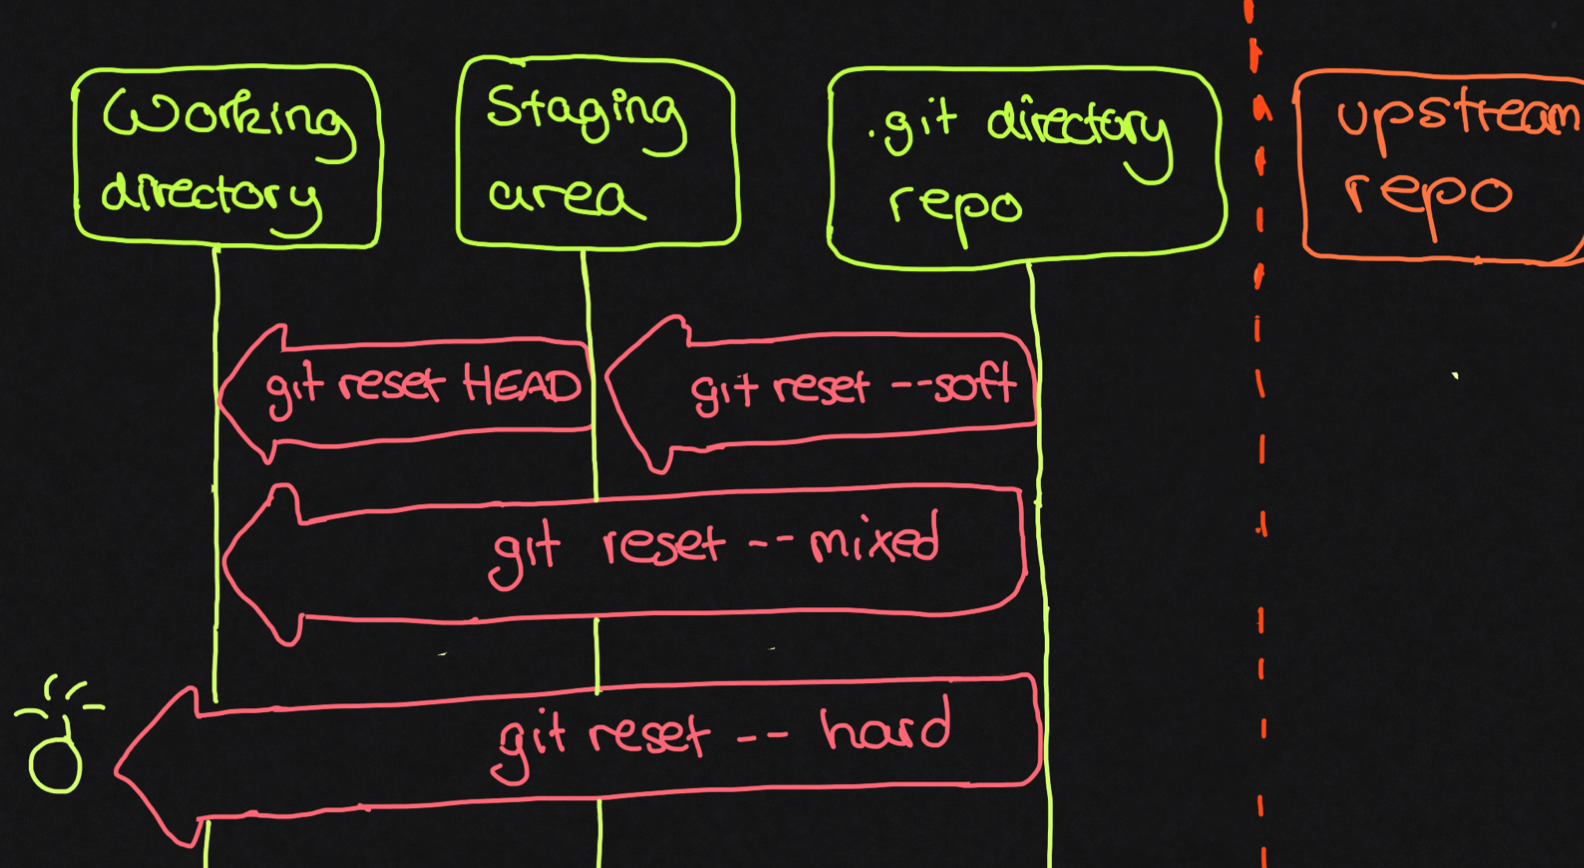 Working
directory
Staging
area
.git directory
repo
upstream
repo
git reset HEAD
git reset --soft
git reset --mixed
git reset -- hard